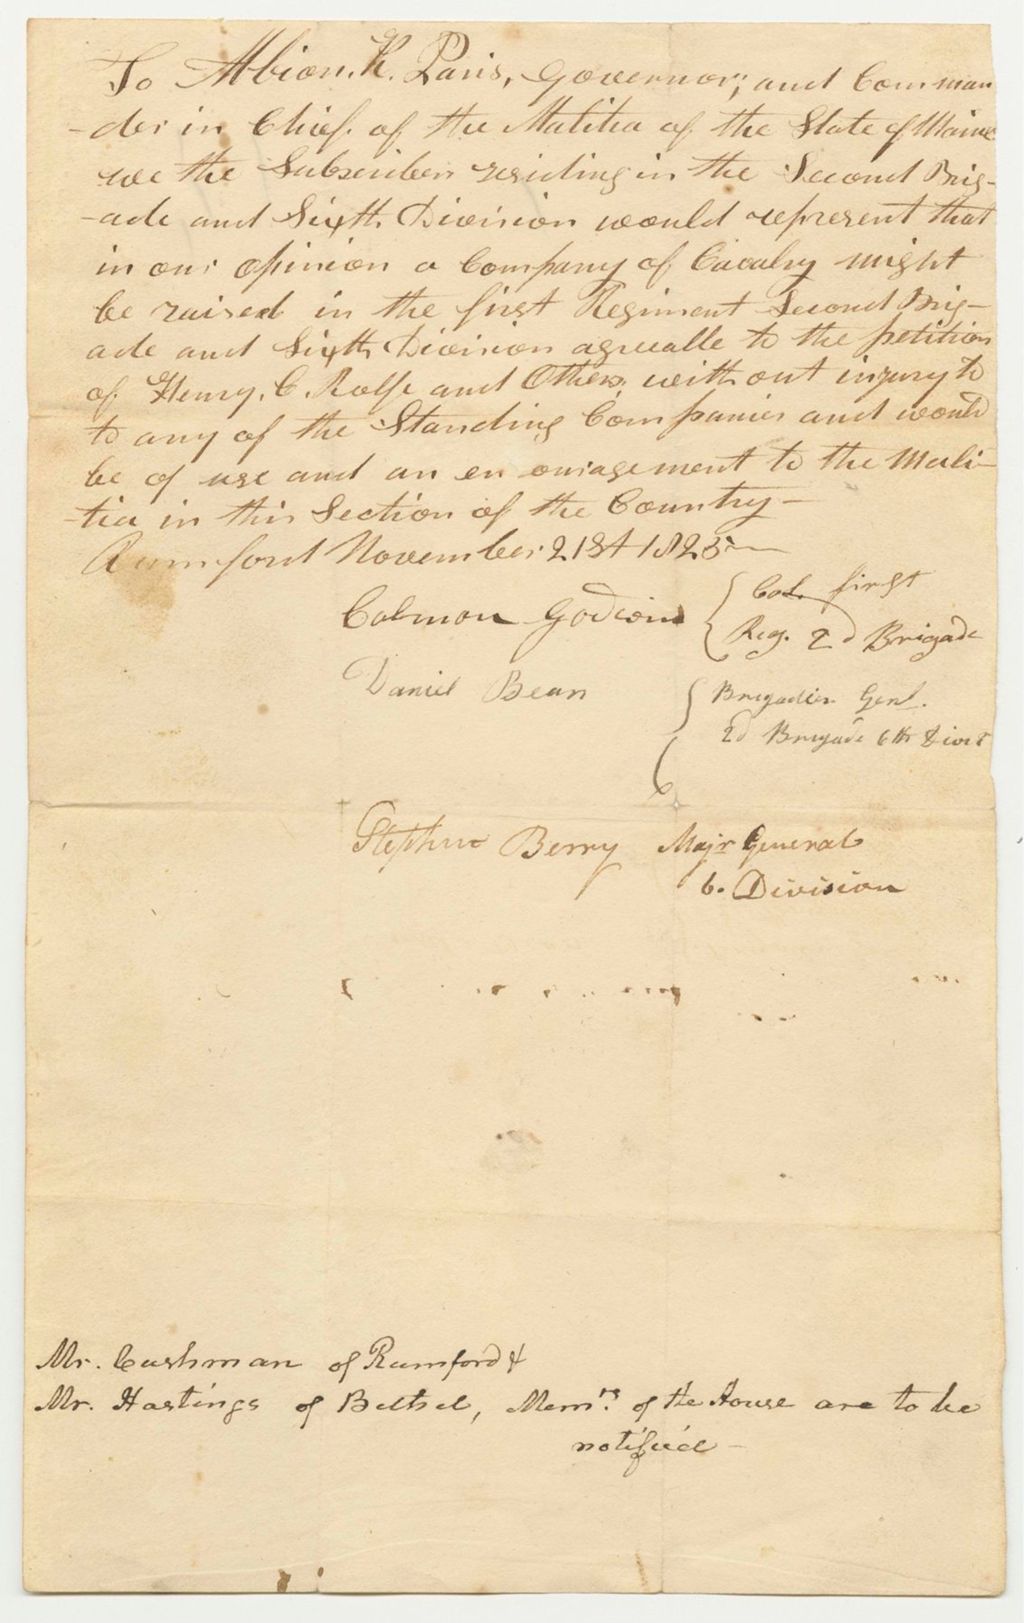 To Albion. K. Paris, Governor; and Comman
-der in Chief. of the Malitia of the State of Maine
we the Subscribers residing in the Second Brig-
-ade and Sixth Division would represent that
in our opinion a Company of Cavalry might
be raised in the first Regiment Second Brig-
ade and Sixth Division agreeable to the petition
of Henry. C. Rolfe and Others. without injury to
to any of the Standing Companies and would
be of use and an en ouragement to the Mali-
-tia in this Section of the Country-
Rumford November 21st 1825
Colmon Godwin
Col. first
Reg. 2d Brigade
Daniel Bean
Brigadier Genl.
2d Brigade 6th Divis
Stephen Berry Majr General
6. Division
Mr. Cushman of Rumford &
Mr. Hastings of Bethel, Memrs. of the House are to be
notified -